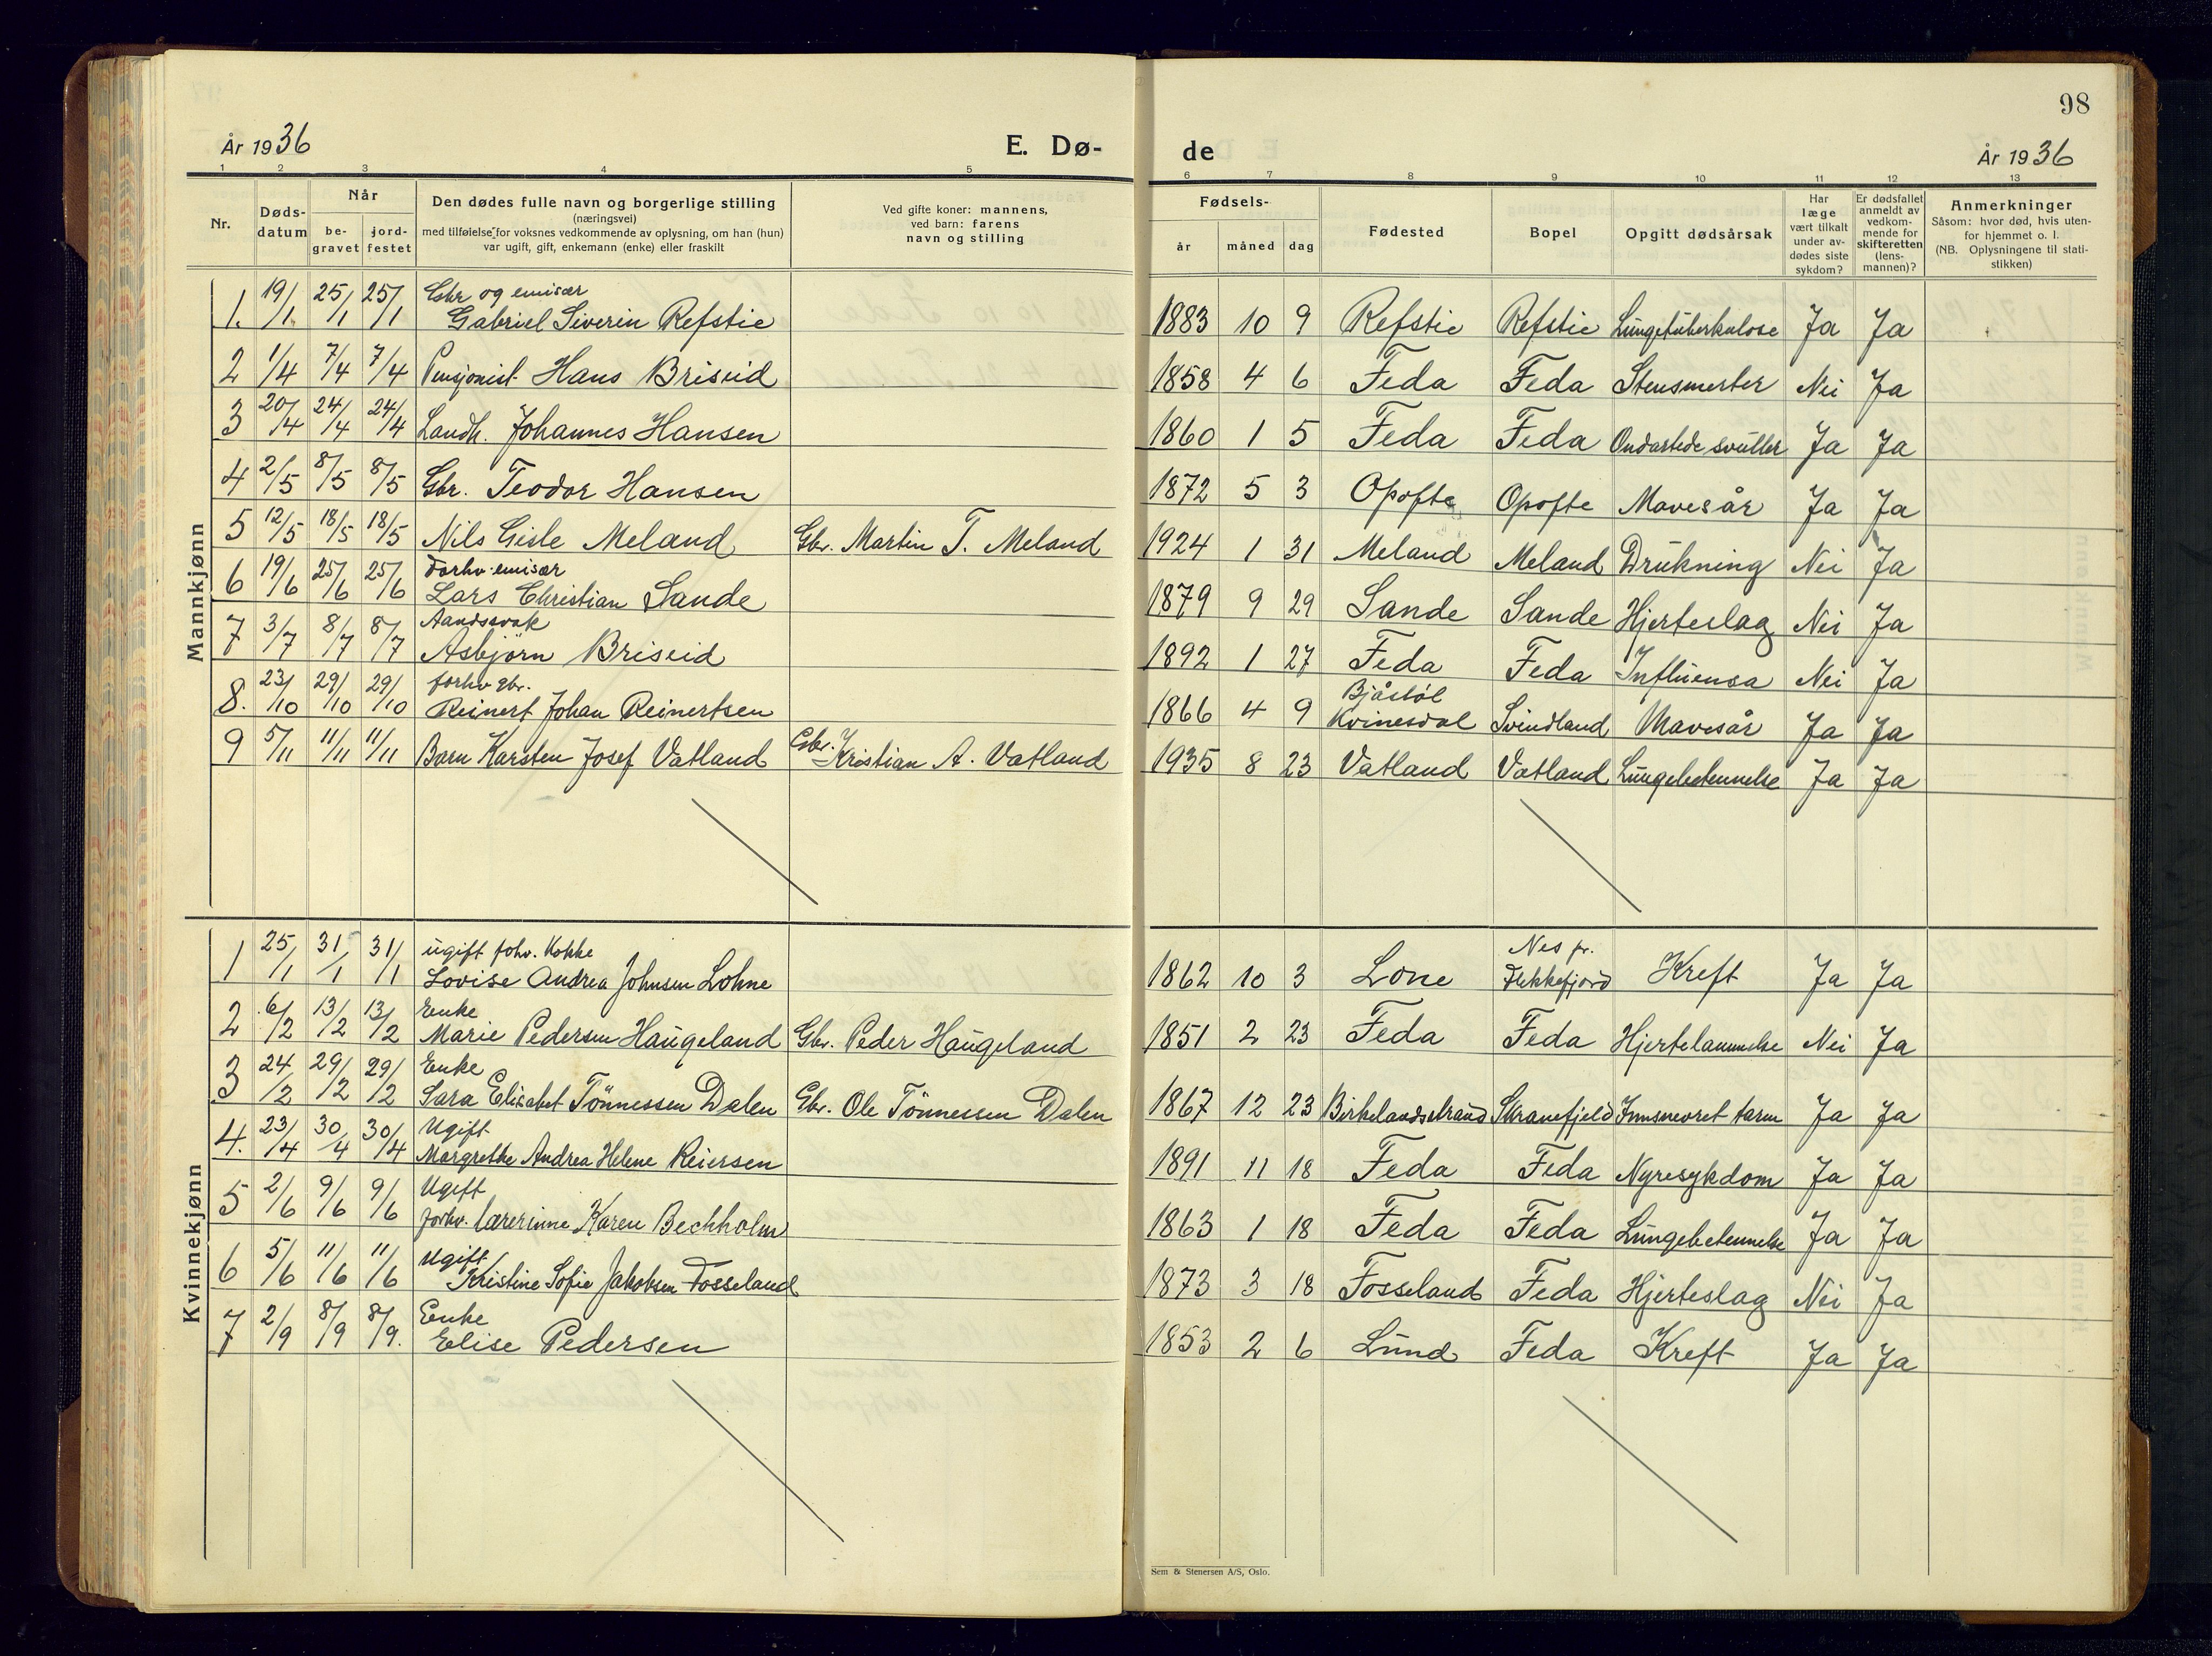 98
År 1936
E. Dø-
de
År 1936
1 2 3 4 5
6 7 8 9 10 11 12 13
Nr.
Døds-
datum
Når
be-
gravet
jord-
festet
Den dødes fulle navn og borgerlige stilling
(næringsvei)
med tilføielse for voksnes vedkommende av oplysning, om han (hun)
var ugift, gift, enkemann (enke) eller fraskilt
Ved gifte koner: mannens,
ved barn: farens
navn og stilling
Fødsels-
år måned dag
Fødested
Bopel
Opgitt dødsårsak
Har
læge
vært tilkalt
under av-
dødes siste
sykdom?
Er dødsfallet
anmeldt av
vedkom-
mende for
skifteretten
(lens-
mannen)?
Anmerkninger
Såsom: hvor død, hvis uten-
for hjemmet o. l.
(NB. Oplysningene til stati-
stikken)
Mannkjønn
Gbr og emisær
1. 19/1. 25/1 25/1 Gabriel Siverin Refstie 1883 10 9 Refstie Refstie Lungetuberkulose Ja Ja
2 1/4 7/4 7/4 Pensjonist Hans Briseid 1858 4 6 Feda Feda Stensmerter Nei Ja
3 20/4 24/4 24/4 Landh. Johannes Hansen 1860 1 5 Feda Feda Ondartede svulter Ja Ja
4 2/5 8/5 8/5 Gbr. Teodor Hansen 1872 5 3 Opofte Opofte Mavesår Ja Ja
5 12/5 18/5 18/5 Nils Gisle Meland Gbr. Martin T. Meland 1924 1 31 Meland Meland Drukning Nei Ja
Forhv. emisær
6 19/6 25/6 25/6 Lars Christian Sande 1879 9 29 Sande Sande Hjerteslag Nei Ja
Aandssvak
7 3/7 8/7 8/7 Asbjørn Briseid 1892 1 27 Feda Feda Influensa Nei Ja
forhv gbr. Bjåstøl
8. 23/10 29/10 29/10 Reinert Johan Reinertsen 1866 4 9 Kvinesdal Svindland Mavesår Ja Ja
9 5/11 11/11 11/11 Barn Karsten Josef Vatland Gbr. Kristian A. Vatland 1935 8 23 Vatland Vatland Lungebetennelse Ja Ja
Kvinnekjønn
ugift fohv. Kokke Nes pr.
1 25/1 31/1 31/1 Lovise Andrea Johnsen Lohne 1862 10 3 Lone Flekkefjord Kreft Ja Ja
Enke
2 6/2 13/2 13/2 Marie Pedersen Haugeland Gbr. Peder Haugeland 1851 2 23 Feda Feda Hjertelammelse Nei Ja
Enke
3 24/2 29/2 29/2 Sara Elisabet Tönnessen Dalen Gbr. Ole Tönnessen Dalen 1867 12 23 Birkelandsstrand Stranefjeld Innsnevret tarm Ja Ja
Ugift
4. 23/4 30/4 30/4 Margrethe Andrea Helene Reiersen 1891 11 18 Feda Feda Nyresykdom Ja Ja
Ugift
5 2/6 9/6 9/6 forhv. lærerinne Karen Bechholm 1863 1 18 Feda Feda Lungebetennelse Ja Ja
Ugift
6 5/6 11/6 11/6 Kristine Sofie Jakobsen Fosseland 1873 3 18 Fosseland Feda Hjerteslag Nei Ja
Enke
7 2/9 8/9 8/9. Elise Pedersen 1853 2 6 Lund Feda Kreft Ja Ja
Sem & Stenersen A/S, Oslo.